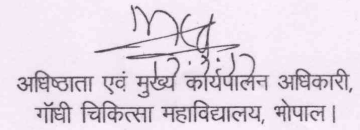 अधिष्ठाता एवं मुख्य कार्यपालन अधिकारी,
गाँधी चिकित्सा महाविद्यालय, भोपाल।